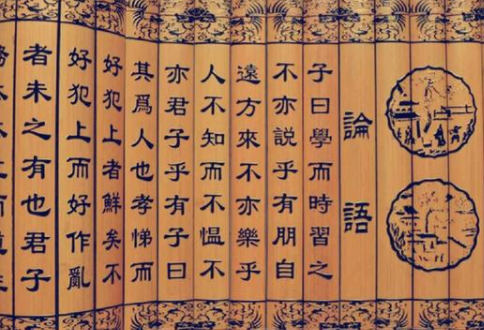 論語
子曰學而時習之
不亦説乎有朋自
遠方來不亦樂乎
人不知而不愠不
亦君子乎有子曰
其爲人也孝悌而
好犯上者鮮矣不
好犯上而好作亂
者未之有也君子